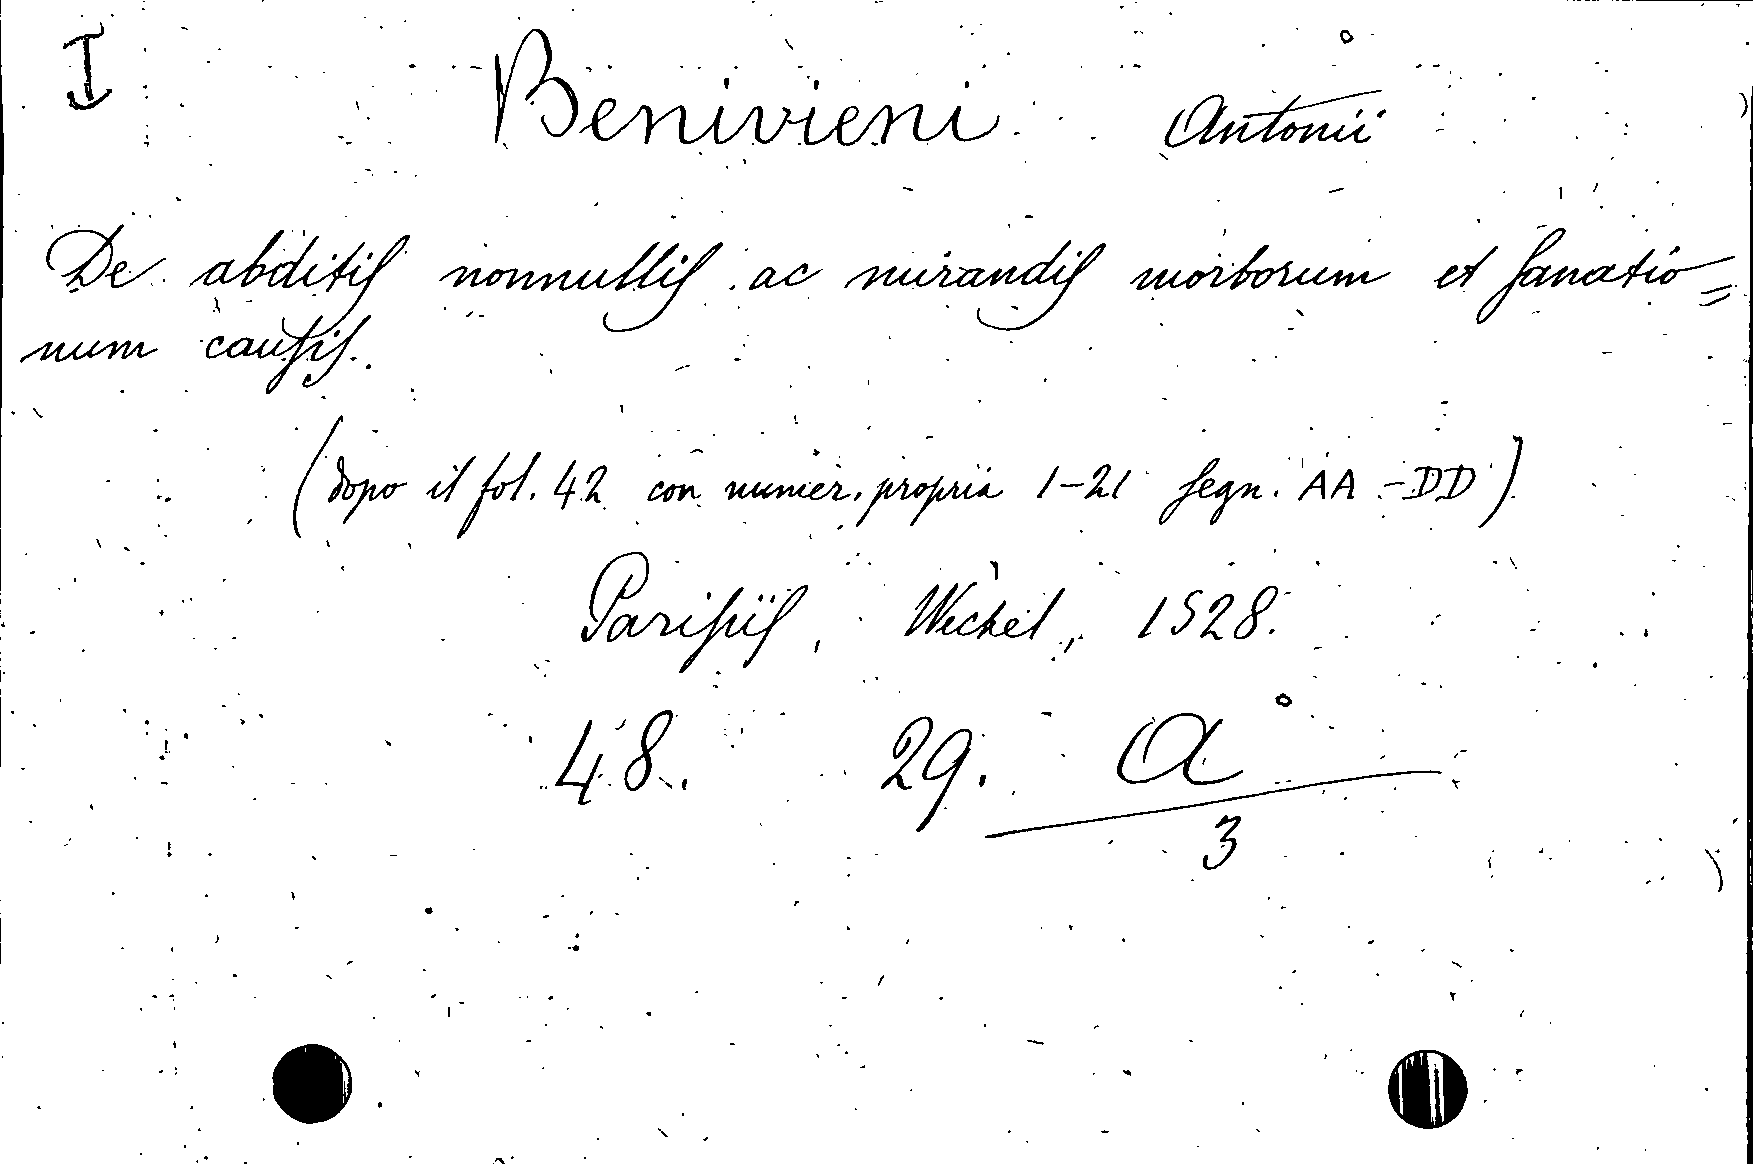 I
Benivieni Antonii
De abditis nonnullis ac mirandis morborum et sanatio=
num causis.
(dopo il fol. 42 con numer. propria 1-21 segn. AA-DD)
Parisiis, Wechel, 1528.
48. 29. A
3